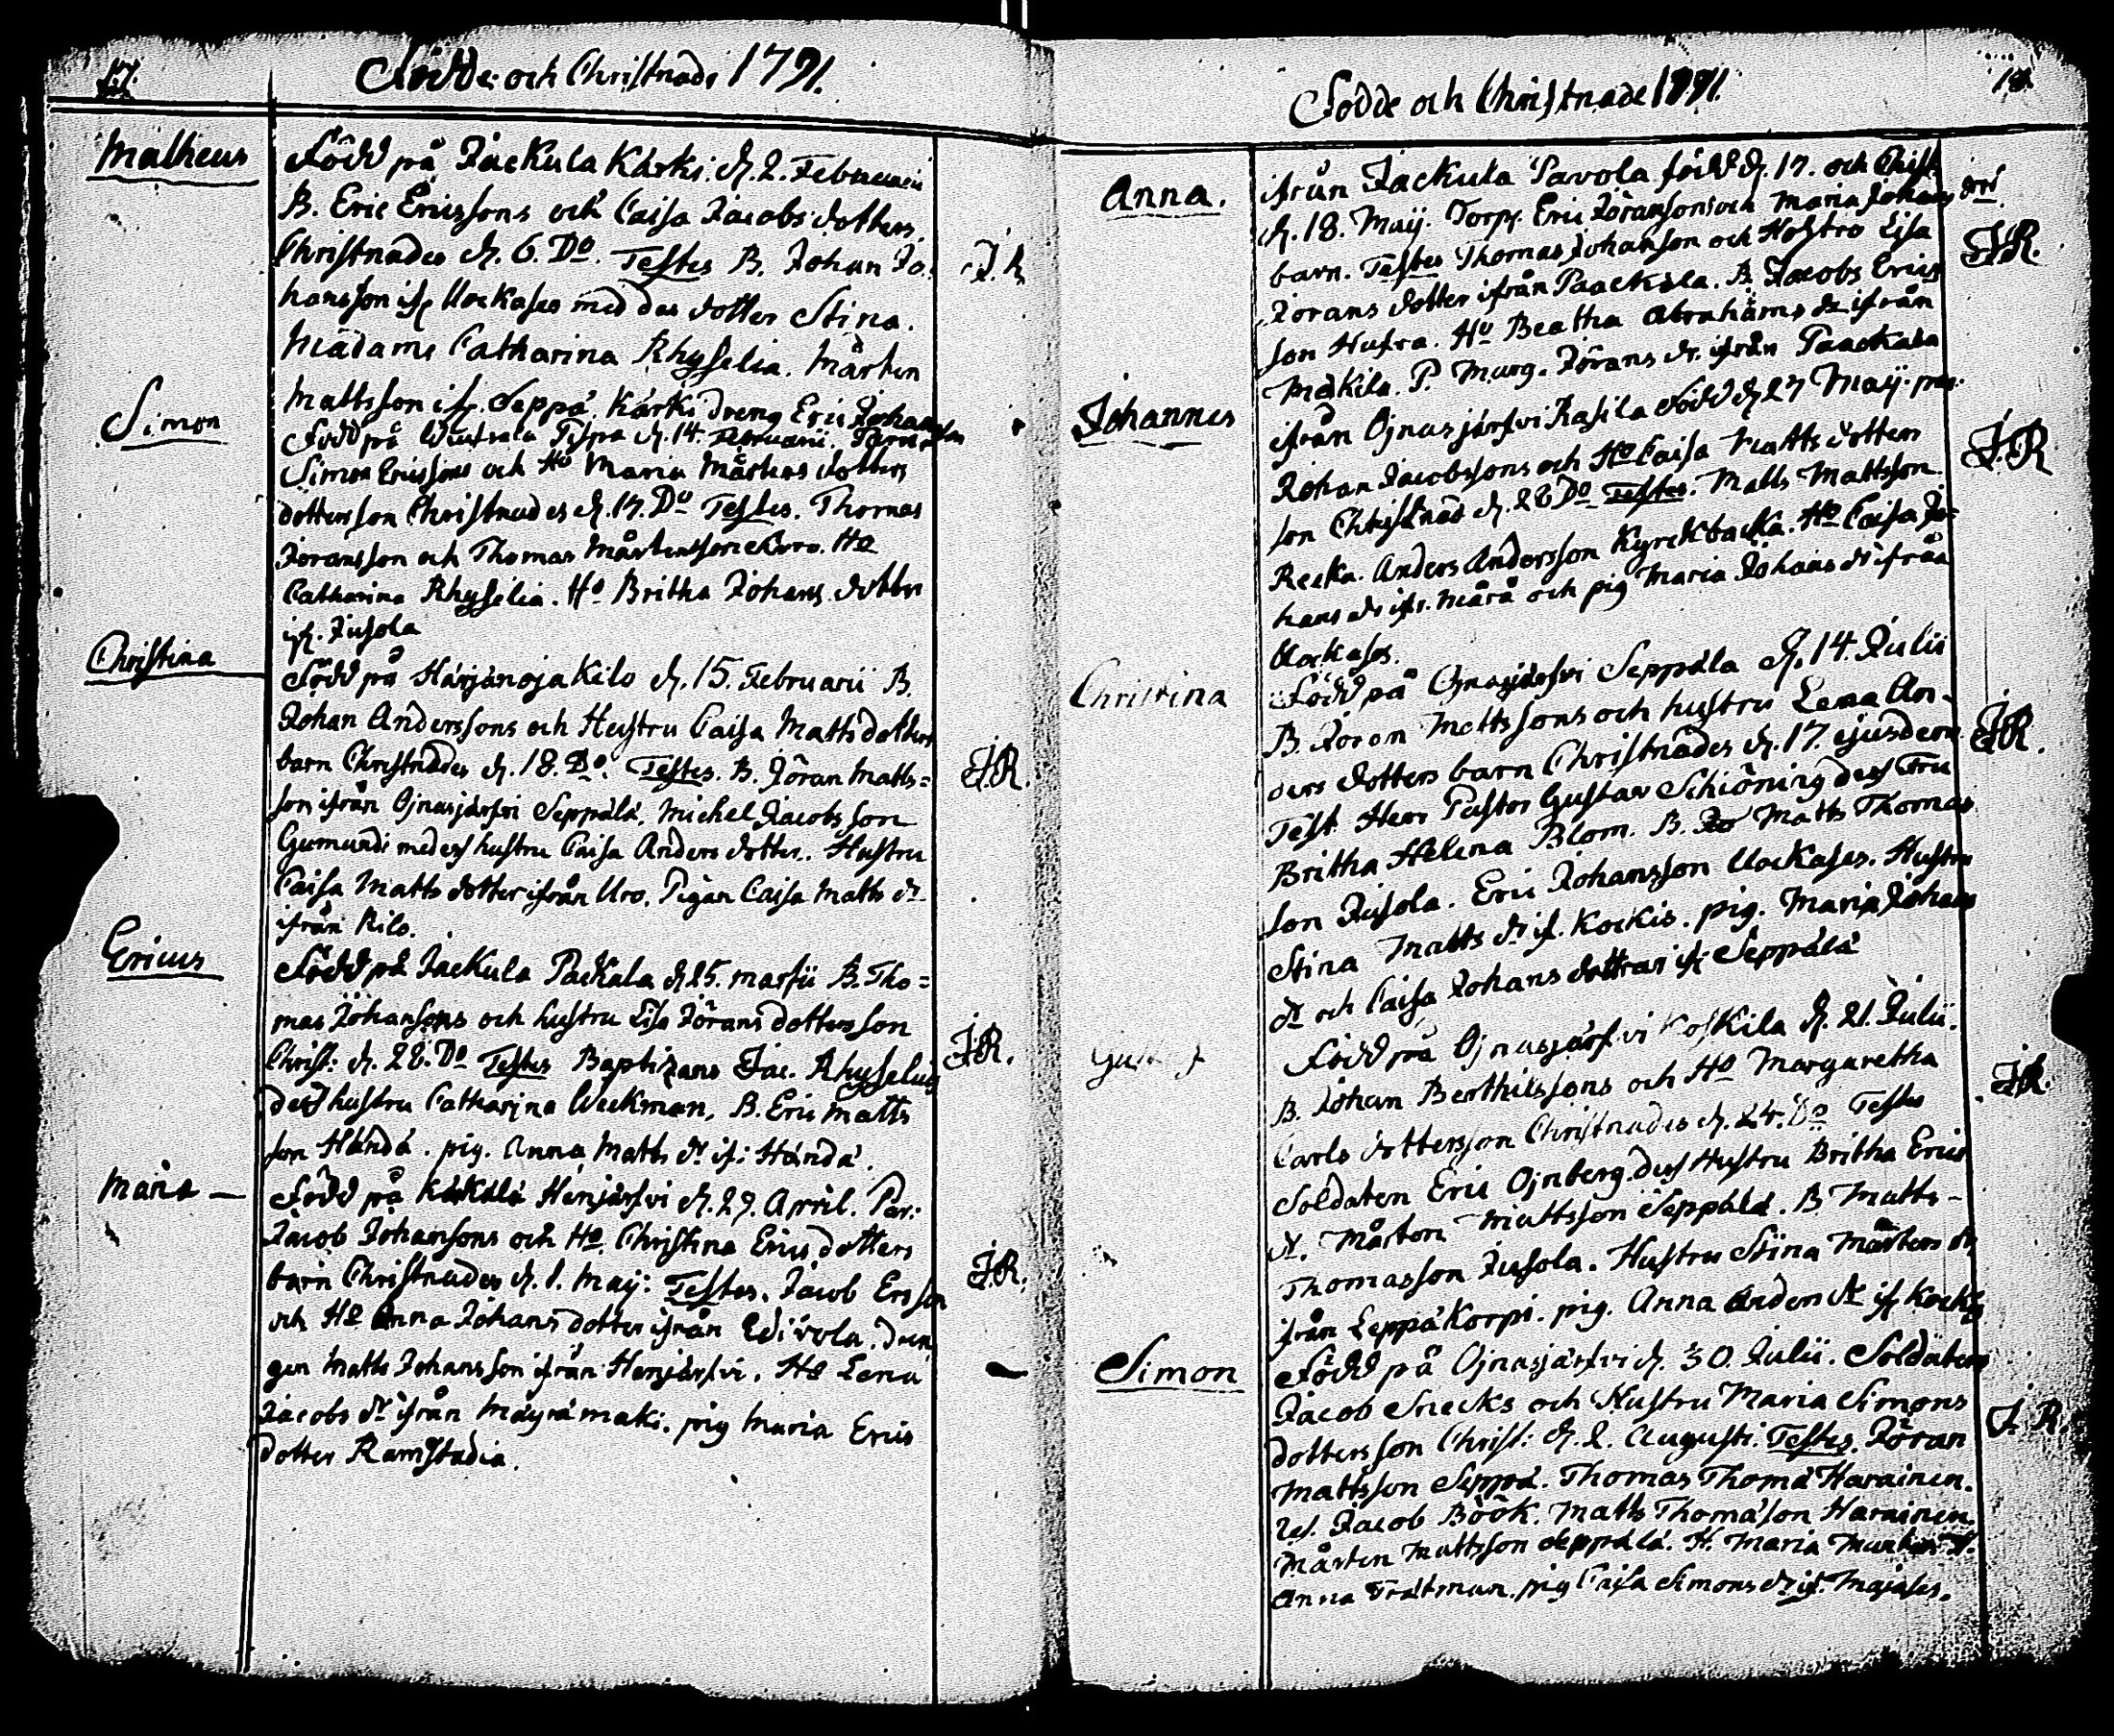 17.
Födde och Christnade 1791.
Matheus
Född på Jackula Kärki. d. 2. Februarii
B. Eric Ericssons och Caisa Jacobs dotters.
Christnades d. 6. Do. Testes B. Johan Jo-
hansson ifr Uockases med des dotter Stina.
J. R
Madame Catharina Rhyselia. Mårten
Mattsson ifr. Seppä. Kärki dreng Eric Johansson
Simon
Född på d. 14. Februarii.
Simon Ericssons och Ho Maria Mårtens dotters
dotters son Christnades d. 17. Do Testes. Thomas
Joransson och Thomas Mårtensson Uro. Ho
Catharina Rhyselia. Ho Britha Johans dotter
ifr. Jusola
Christina
Född på Härjänoja Kilo d. 15. Februarii B.
Johan Anderssons och Hustru Caisa Matts dotters
barn Christnades d. 18. Do. Testes. B. Jöran Matts=
J.R.
son ifrån Ojnasjärfvi Seppälä. Michel Jacobsson
Gumundi med des hustru Caisa Anders dotter. Hustru
Caisa Matts dotter ifrån Uro. Pigan Caisa Matts dr
ifrån Kilo.
Ericus
Född på Jackula Packala d 25. martii B. Tho=
mas Johansons och hustru Lisa Jörans dotters son
Christ: d. 28. Do Testes Baptizans Jac. Rhyselius
J.R.
des hustru Catharina Weckman. B. Eric Matts
son Händä. pig. Anna Matts dr if: Händä.
Maria —
Född på Henjärfvi d. 29. April. Par:
Jacob Johansons och Ho. Christina Erics dotters
barn Christnades d. 1. Maij: Testes. Jacob Ersson
J.R.
och Ho Anna Johans dotter ifrån Edivola. dren
gen Matts Johansson ifrån Henjärfvi. Ho Lena
Jacobs dr ifrån Mäyrämaki. pig Maria Erics
dotter Ramstadia.
18.
Födde och Christnade 1791.
Anna.
ifrån Jackula Pavola född d. 17. och Christ.
d. 18. Maij. Torp. Eric Jöransons och Maria Johans dotr
barn. Testes Thomas Johanson och Hostro Lisa
J.R.
Jorans dotter ifrån Paackala. B. Jacobs Erics
son Hufra. Ho Beatha Abrahams dr ifrån
Makila. P. Marg. Jörans dr. ifrån Paackala
Johannes
ifrån Ojnasjärfvi Kasila född d 27 Maij.
Johan Jacobssons och Ho Caisa Matts dotters
J.R.
son Christnad d. 28 Do Testes. Matts Mattsson
Recka. Anders Andersson Kyrckbacka. Ho Caisa Jo=
hans dr ifr. Mårå och pig Maria Johans dr ifrån
Uockases.
Christina
Född på Ojnasjärfvi Seppäla d. 14. Julii
B. Joran Mattssons och hustru Lena An-
ders dotters barn Christnades d. 17. ejusdem.
J.R.
Test. Herr Pastor Gustav Schiöning des Fru
Britha Helena Blom. B. Matts Thomas
son Jusola. Eric Johansson Uockases. Hustru
Stina Matts dr if. Kockis. pig. Maria Johans
dr och Caisa Johans dottrar ifr Seppälä
Född på Ojnasjärfvi Koskila d. 21. Julii.
B. Johan Berthilssons och Ho Margaretha
J.R.
Carls dottersson Christnades d. 24. Do Testes
Soldaten Eric Ojnberg. des Hustru Britha Erics
dr. Mårten Mattsson Seppälä. B Matts-
Thomasson Jusola. Hustru Stina Mårtens dr
ifrån Leppäkorpi. pig. Anna Anders dr ifr Kockis
Simon
Född på Ojnasjärfvi d. 30. Julii. Soldatens
Jacob Snecks och Hustru Maria Simons
dotters son Christ: d. 2. Augusti. Testes. Jöran
J. R.
Mattsson Seppä. Thomas Thomä Harainen.
Jacob Böök. Matts Thomäson Harainen.
Mårten Mattsson Seppälä. H. Maria
Anna Trätman. pig Caisa Simons dr if. Majases.